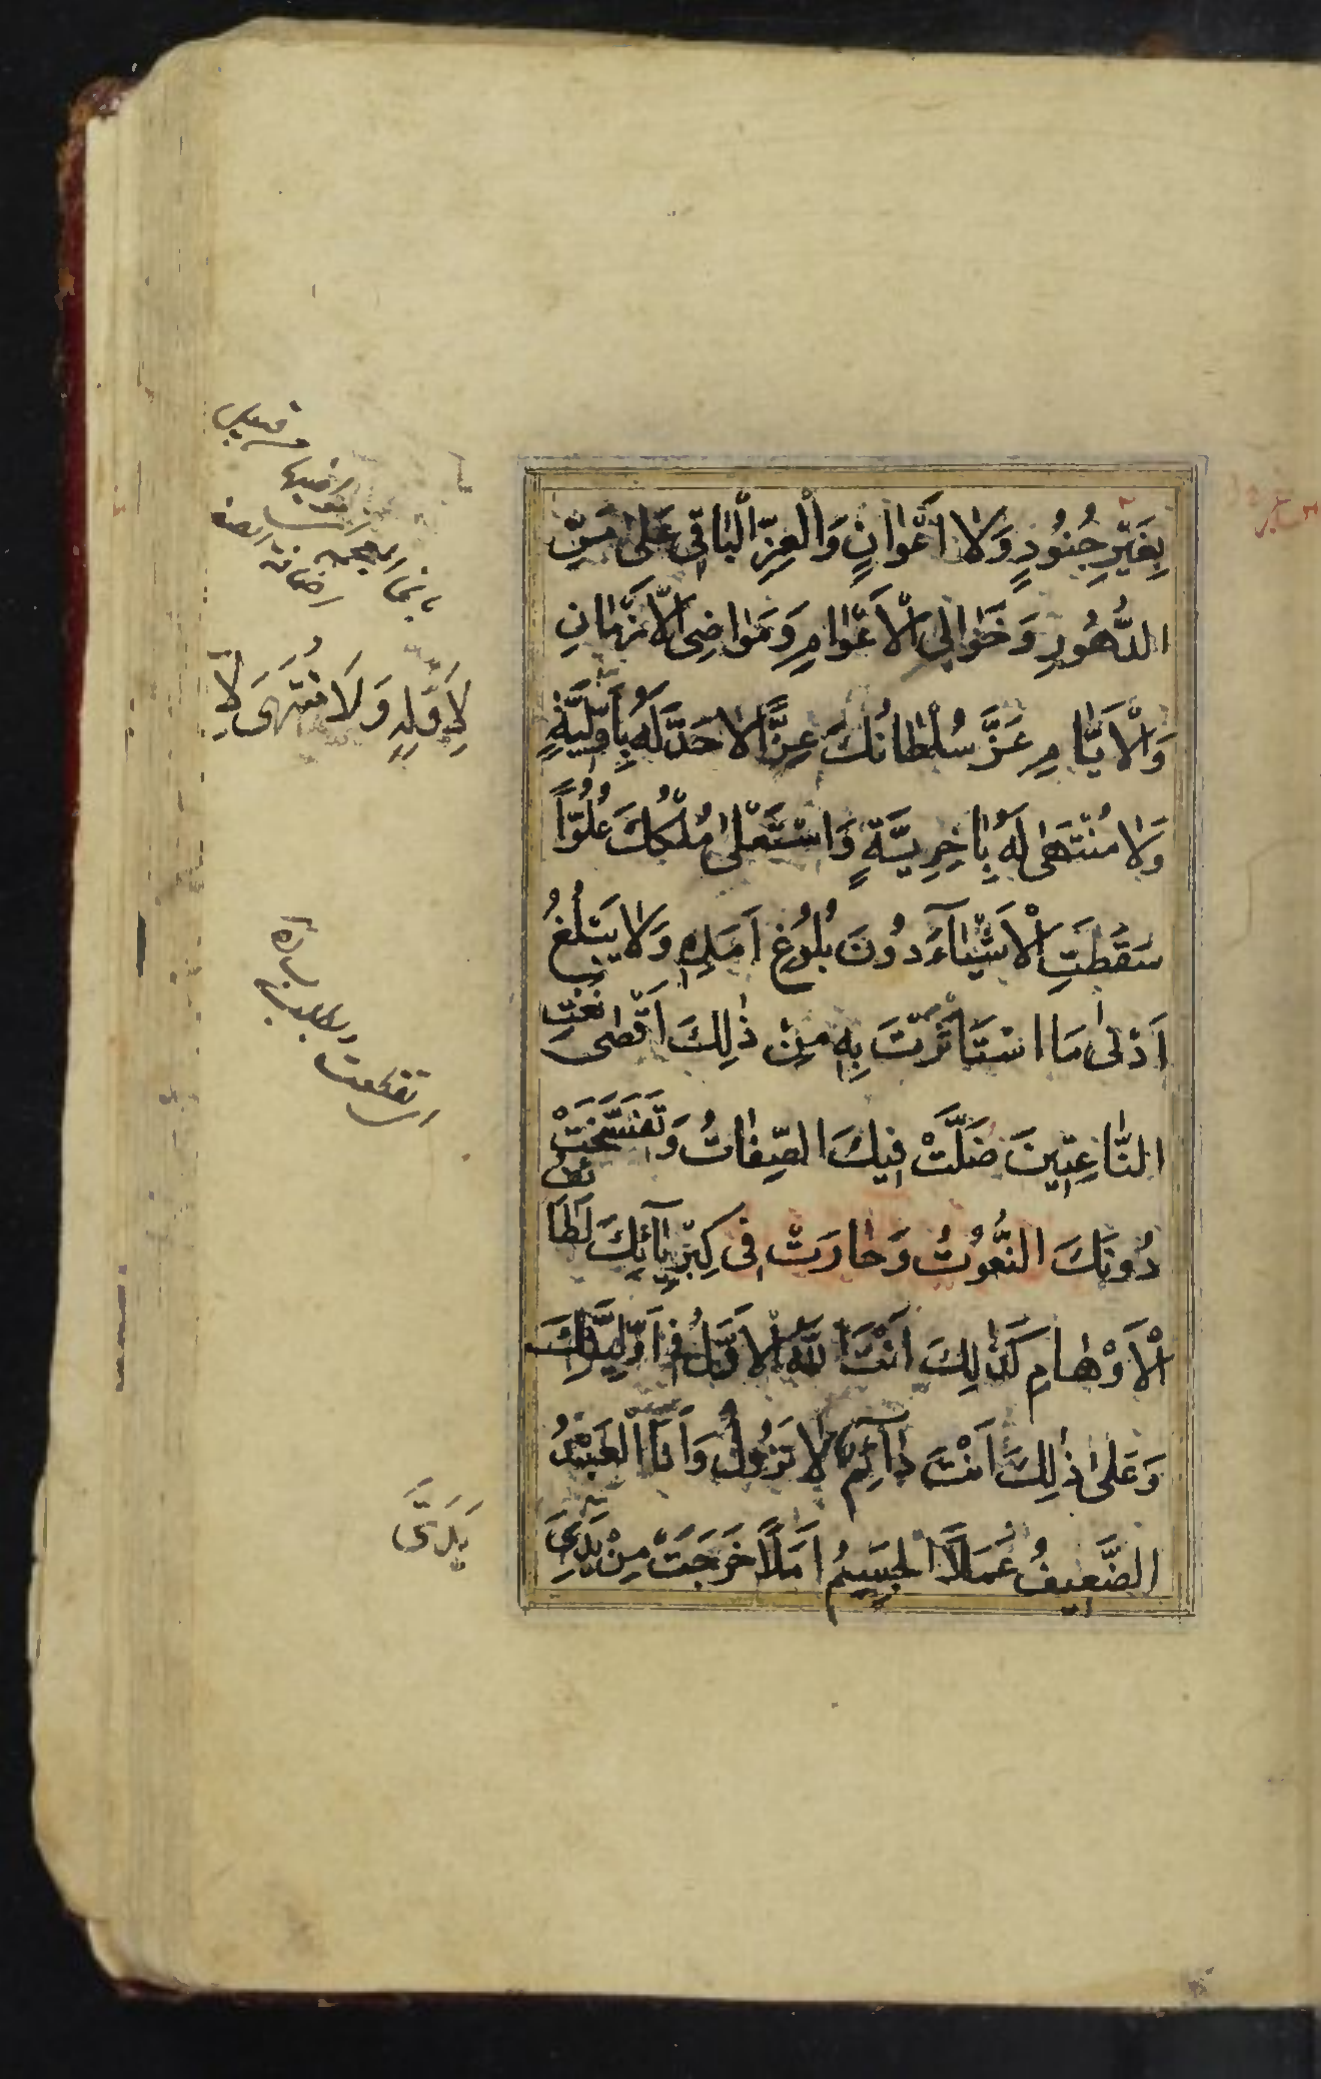 بِغَيْرِ جُنُودٍ وَلَا اَعْوَانٍ وَالْعِزِّ الْبَاقِي عَلَى مَرِّ
الدُّهُورِ وَخَوَالِي الْاَعْوَامِ وَمَوَاضِي الْاَزْمَانِ
وَالْاَيَّامِ عَزَّ سُلْطَانُكَ عِزًّا لَا حَدَّ لَهُ بِاَوَّلِيَّةٍ
وَلَا مُنْتَهَى لَهُ بِاٰخِرِيَّةٍ وَاسْتَعْلَى مُلْكُكَ عُلُوًّا
سَقَطَتِ الْاَشْيَآءُ دُونَ بُلُوغِ اَمَدِهِ وَلَا يَبْلُغُ
اَدْنٰى مَا اسْتَاْثَرْتَ بِهِ مِنْ ذٰلِكَ اَقْصٰى نَعْتِ
النَّاعِتِينَ ضَلَّتْ فِيكَ الصِّفَاتُ وَتَفَسَّخَتْ
دُونَكَ النُّعُوتُ وَحَارَتْ فِي كِبْرِيَآئِكَ لَطَائِفُ
الْاَوْهَامِ كَذٰلِكَ اَنْتَ اللّٰهُ الْاَوَّلُ فِي اَوَّلِيَّتِكَ
وَعَلٰى ذٰلِكَ اَنْتَ دَآئِمٌ لَا تَزُولُ وَاَنَا الْعَبْدُ
الضَّعِيفُ عَمَلًا الْجَسِيمُ اَمَلًا خَرَجَتْ مِنْ يَدِيَ
لِاَوَّلِهِ وَلَا مُنْتَهَى لِاٰ
يَدَيَّ